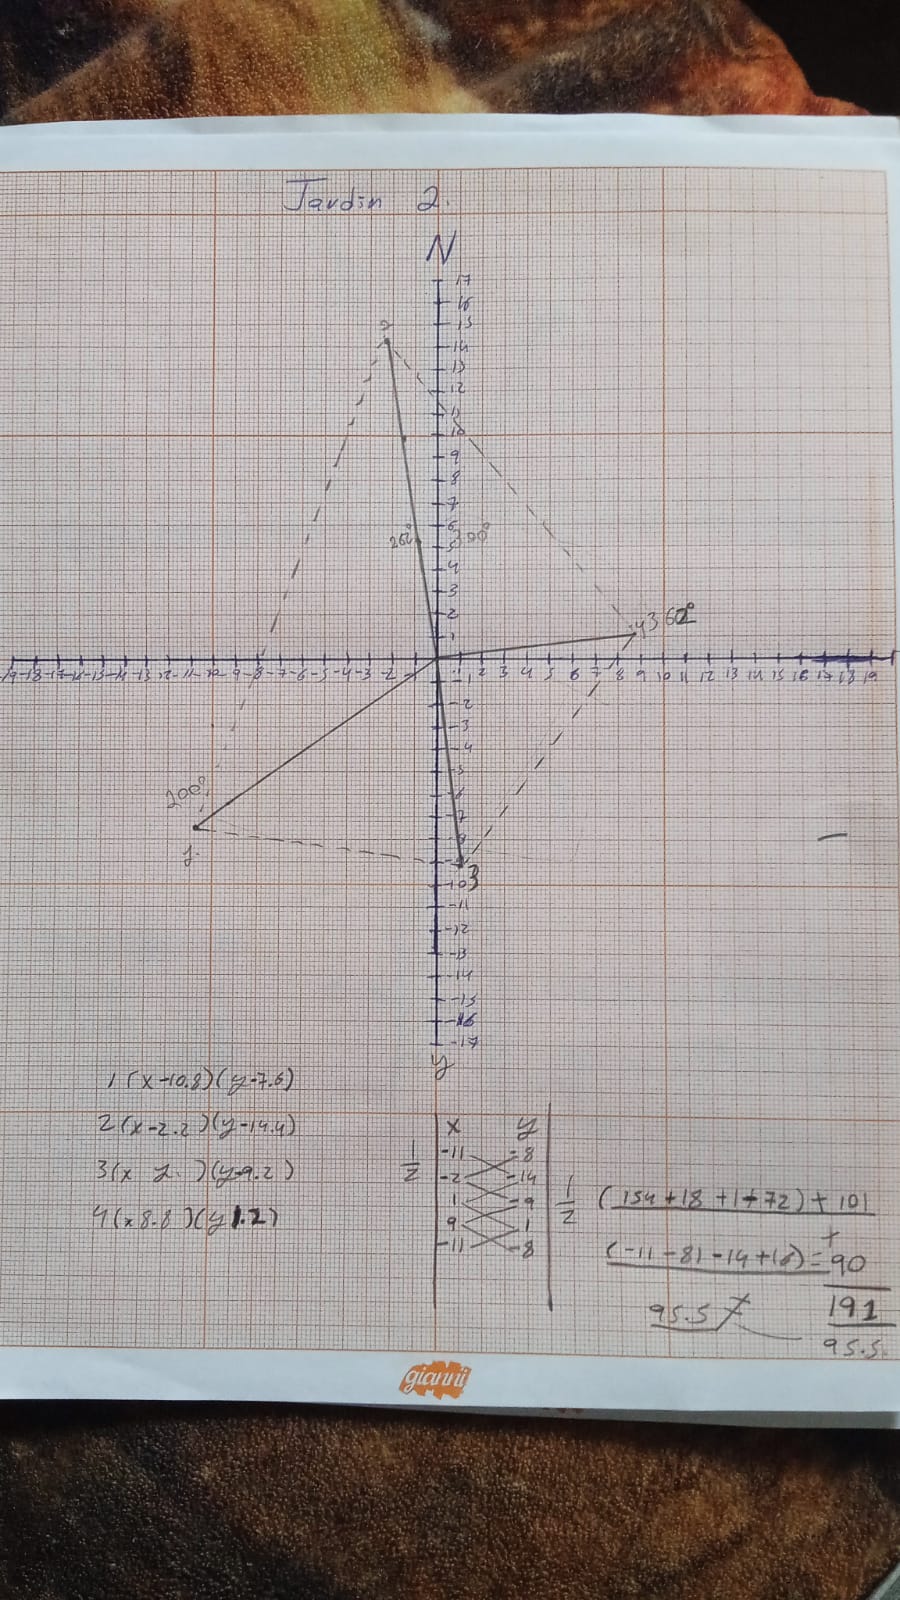 Jardin 2.
N
17
16
15
2
14
13
12
11
10
9
8
7
6
5
4
3
2
1
360°
200°
1.
-19 -18 -17 -16 -15 -14 -13 -12 -11 -10 -9 -8 -7 -6 -5 -4 -3 -2
1 2 3 4 5 6 7 8 9 10 11 12 13 14 15 16 17 18 19
-1
-2
-3
-4
-5
-6
-7
-8
-9
-10 3
-11
-12
-13
-14
-15
-16
-17
y
1(x-10.8)(y-7.6)
2(x-2.2)(y-14.4)
3(x 1. )(y-9.2)
4(x8.8)(y1.2)
x y
1/2
-11 -8
-2 -14
1 -9
9 1
-11 -8
1/2 (154+18+1+72)+101
+
(-11-81-14+16)=90
191
95.5
95.5
gianni